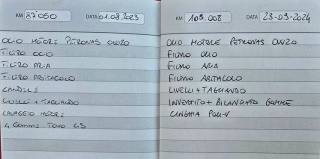 KM 87050 DATA 01.08.2023
OLIO MOTORE PETRONAS 0W20
FILTRO OLIO
FILTRO ARIA
FILTRO ABITACOLO
CANDELE
LIVELLI + TAGLIANDO
LAVAGGIO MOTORE
4 GOMME TOYO
KM 108.008 DATA 23-03-2024
OLIO MOTORE PETRONAS 0W20
FILTRO OLIO
FILTRO ARIA
FILTRO ABITACOLO
LIVELLI + TAGLIANDO
INVERTITO + BILANCIATO GOMME
CINGHIA POLI-V